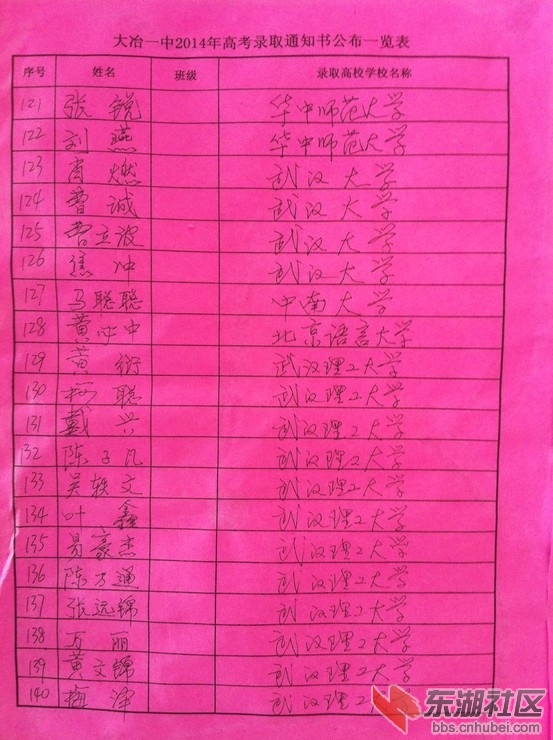 大冶一中2014年高考录取通知书公布一览表
序号 姓名 班级 录取高校学校名称
121 张锐 华中师范大学
122 刘燕 华中师范大学
123 肖燃 武汉大学
124 曹诚 武汉大学
125 曹立波 武汉大学
126 焦冲 武汉大学
127 马聪聪 中南大学
128 黄中 北京语言大学
129 黄衍 武汉理工大学
130 柯聪 武汉理工大学
131 戴兴 武汉理工大学
132 陈子凡 武汉理工大学
133 吴轶文 武汉理工大学
134 叶鑫 武汉理工大学
135 易豪杰 武汉理工大学
136 陈方通 武汉理工大学
137 张远锦 武汉理工大学
138 万丽 武汉理工大学
139 黄文锦 武汉理工大学
140 梅泽 武汉理工大学
东湖社区
bbs.cnhubei.com